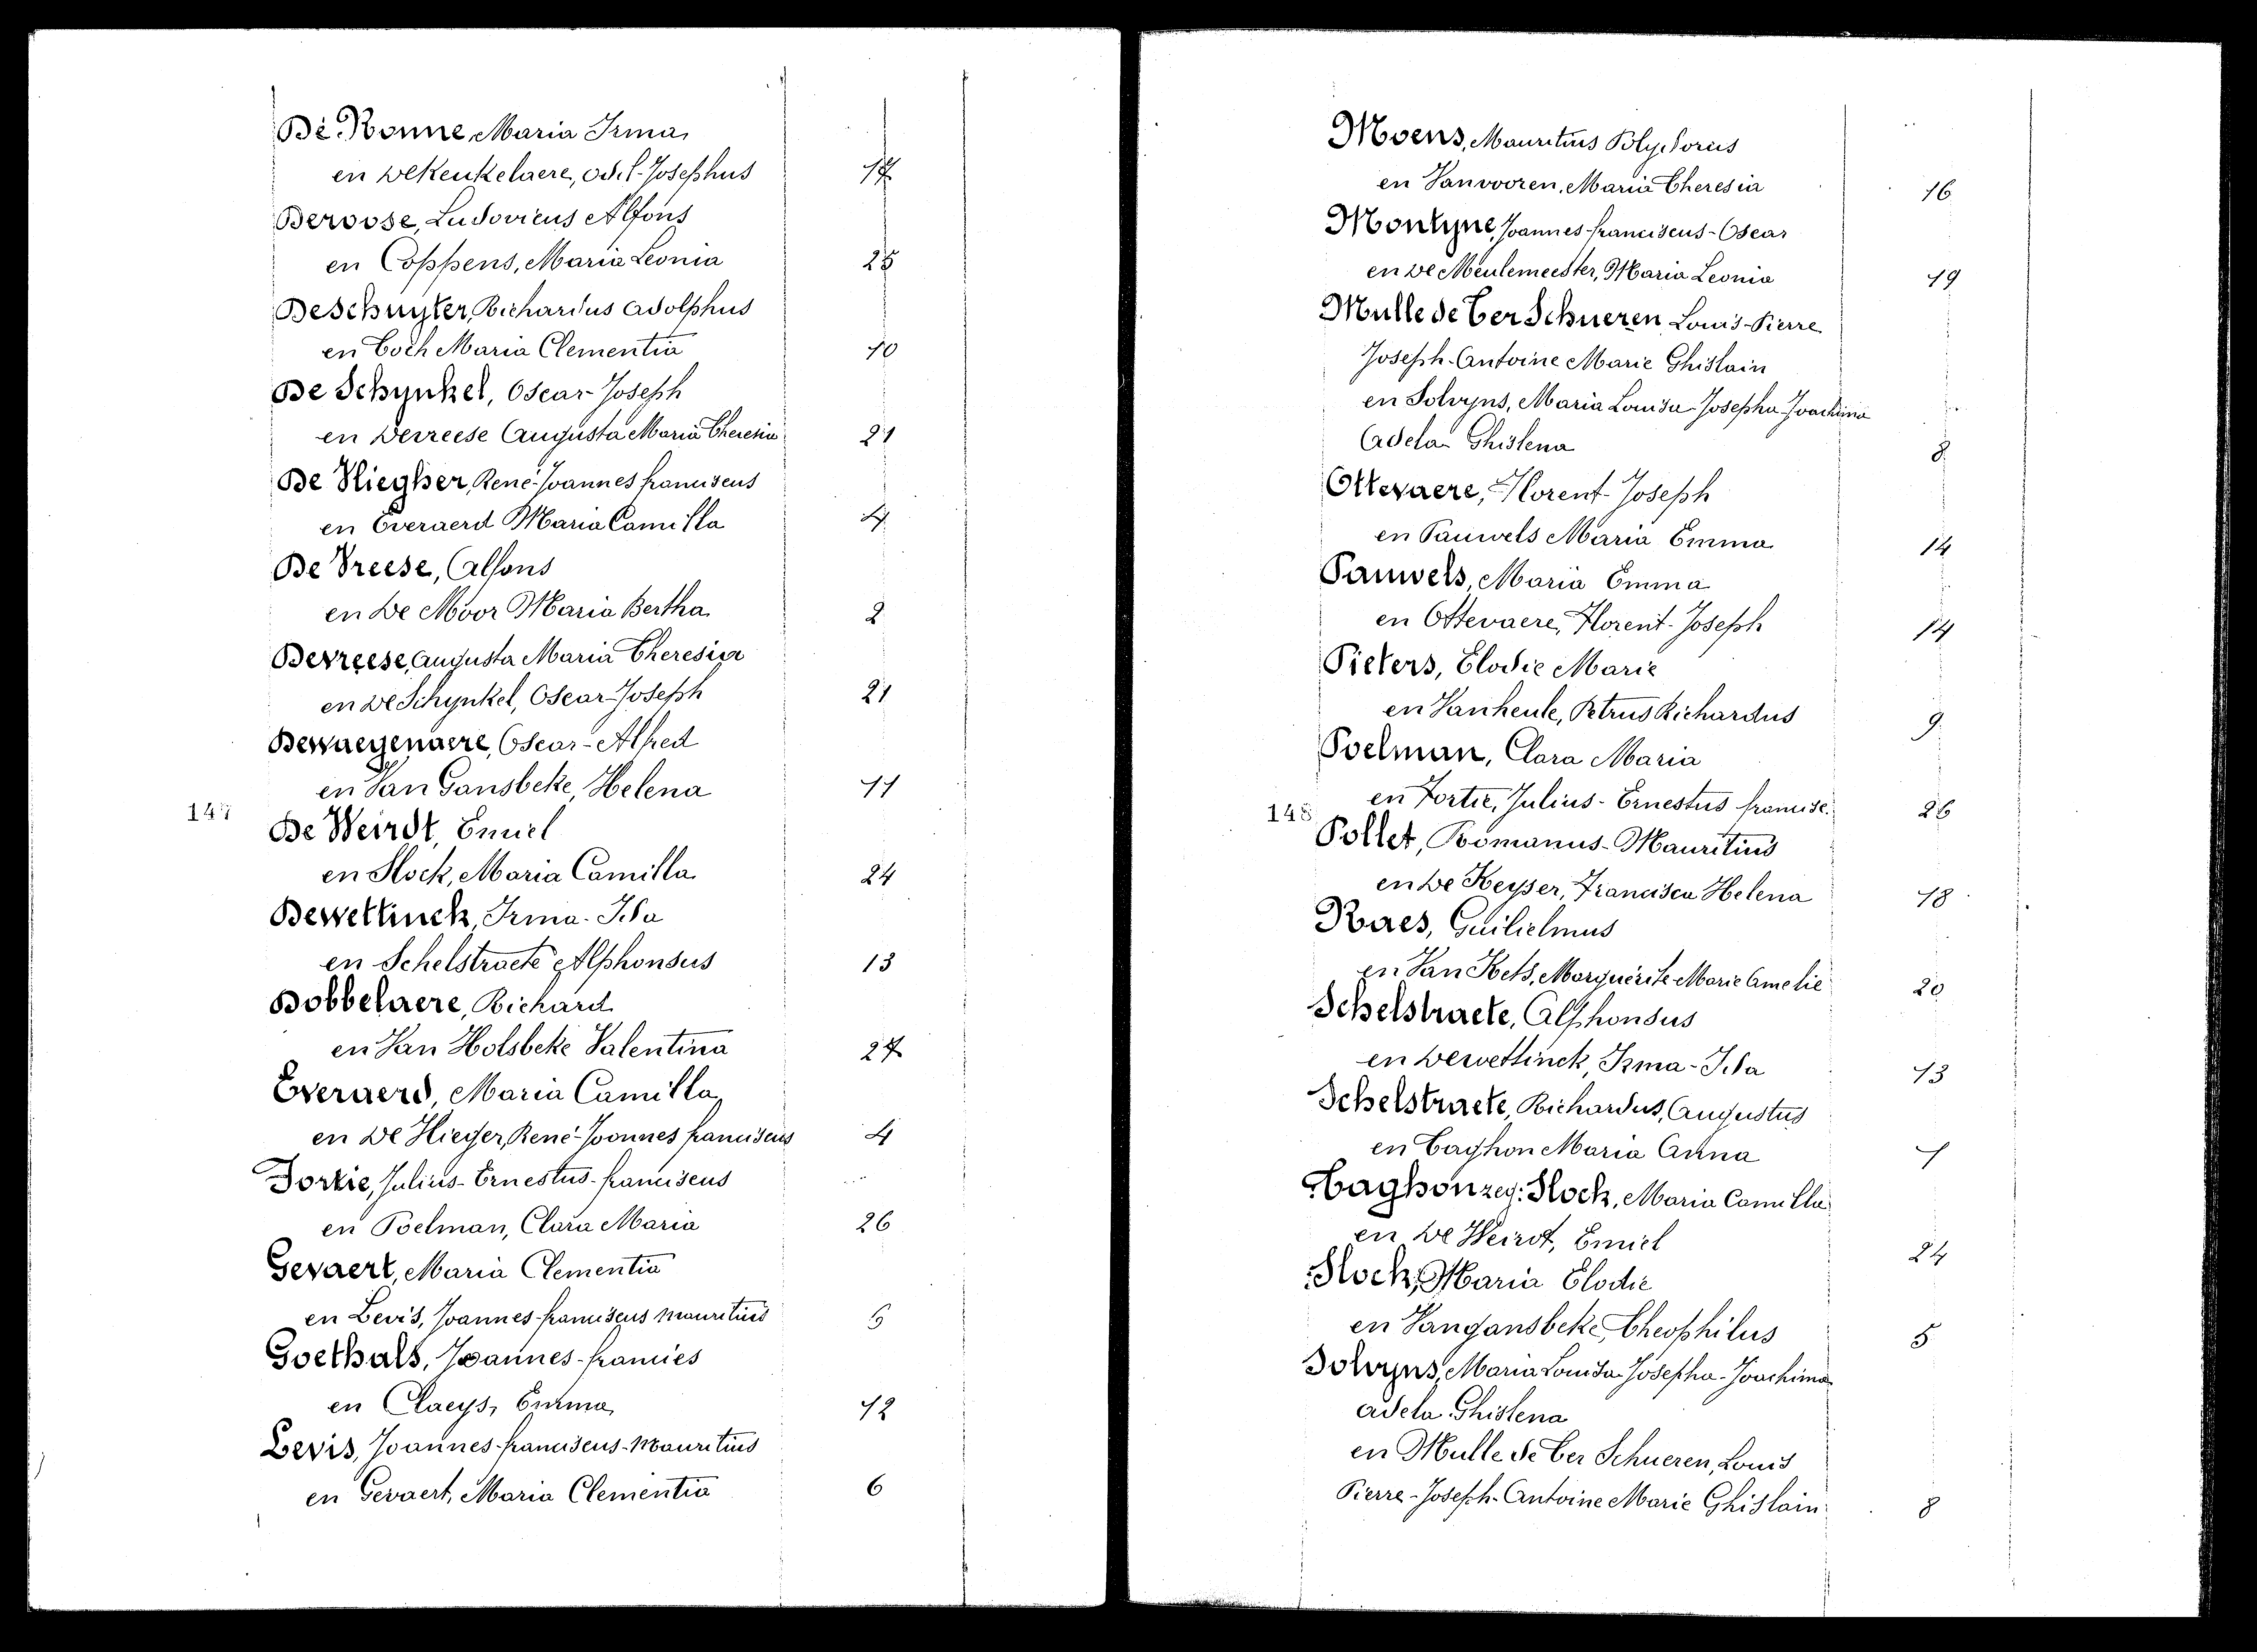 De Ronne, Maria Irma,
en De Keukelaere, Odil-Josephus 17
Deroose, Ludovicus Alfons
en Coppens, Maria Leonia 25
DeSchuyter, Richardus Adolphus
en Coch Maria Clementia 10
De Schynkel, Oscar-Joseph
en Devreese Augusta Maria Theresia 21
De Vliegher, René-Joannes franciscus
en Everaerd Maria Camilla 4
De Vreese, Alfons
en De Moor Maria Bertha 2
Devreese, Augusta Maria Theresia
en De Schynkel, Oscar-Joseph 21
Dewaegenaere, Oscar-Alfred
en Van Gansbeke, Helena 11
147
De Weirdt, Emiel
en Slock, Maria Camilla 24
Dewettinck, Irma-Ida
en Schelstraete Alphonsus 13
Dobbelaere, Richard
en Van Holsbeke Valentina 27
Everaerd, Maria Camilla,
en De Vlieger, René-Joannes franciscus 4
Fortie, Julius-Ernestus-franciscus
en Poelman, Clara Maria 26
Gevaert, Maria Clementia
en Levis, Joannes-franciscus Mauritius 6
Goethals, Joannes-francies
en Claeys, Emma, 12
Levis, Joannes-franciscus-Mauritius
en Gevaert, Maria Clementia 6
Moens, Mauritius Polydorus
en Vanvooren, Maria Theresia 16
Montyne, Joannes-franciscus-Oscar
en De Meulemeester, Maria Leonia 19
Mulle de Ter Schueren Louis-Pierre
Joseph-Antoine Marie Ghislain
en Solvyns, Maria Louisa-Josepha-Joachima
Adela Ghislena 8
Ottevaere, Florent-Joseph
en Pauwels Maria Emma 14
Pauwels, Maria Emma
en Ottevaere, Florent-Joseph 14
Pieters, Elodie Marie
en Vanheule, Petrus Richardus 9
Poelman, Clara Maria
en Fortie, Julius-Ernestus francisc. 26
148
Pollet, Romanus-Mauritius
en De Keyser, Francisca Helena 18
Raes, Guilielmus
en Van Kets, Marguérite Marie Amelie 20
Schelstraete, Alphonsus
en Dewettinck, Irma-Ida 13
Schelstraete, Richardus, Augustus
en Taghon Maria Anna 1
Taghon zeg: Slock, Maria Camilla
en De Weirdt, Emiel 24
Slock, Maria Elodie
en Vangansbeke, Theophilus 5
Solvyns, Maria Louisa-Josepha-Joachima
Adela Ghislena
en Mulle de Ter Schueren, Louis
Pierre-Joseph-Antoine Marie Ghislain 8